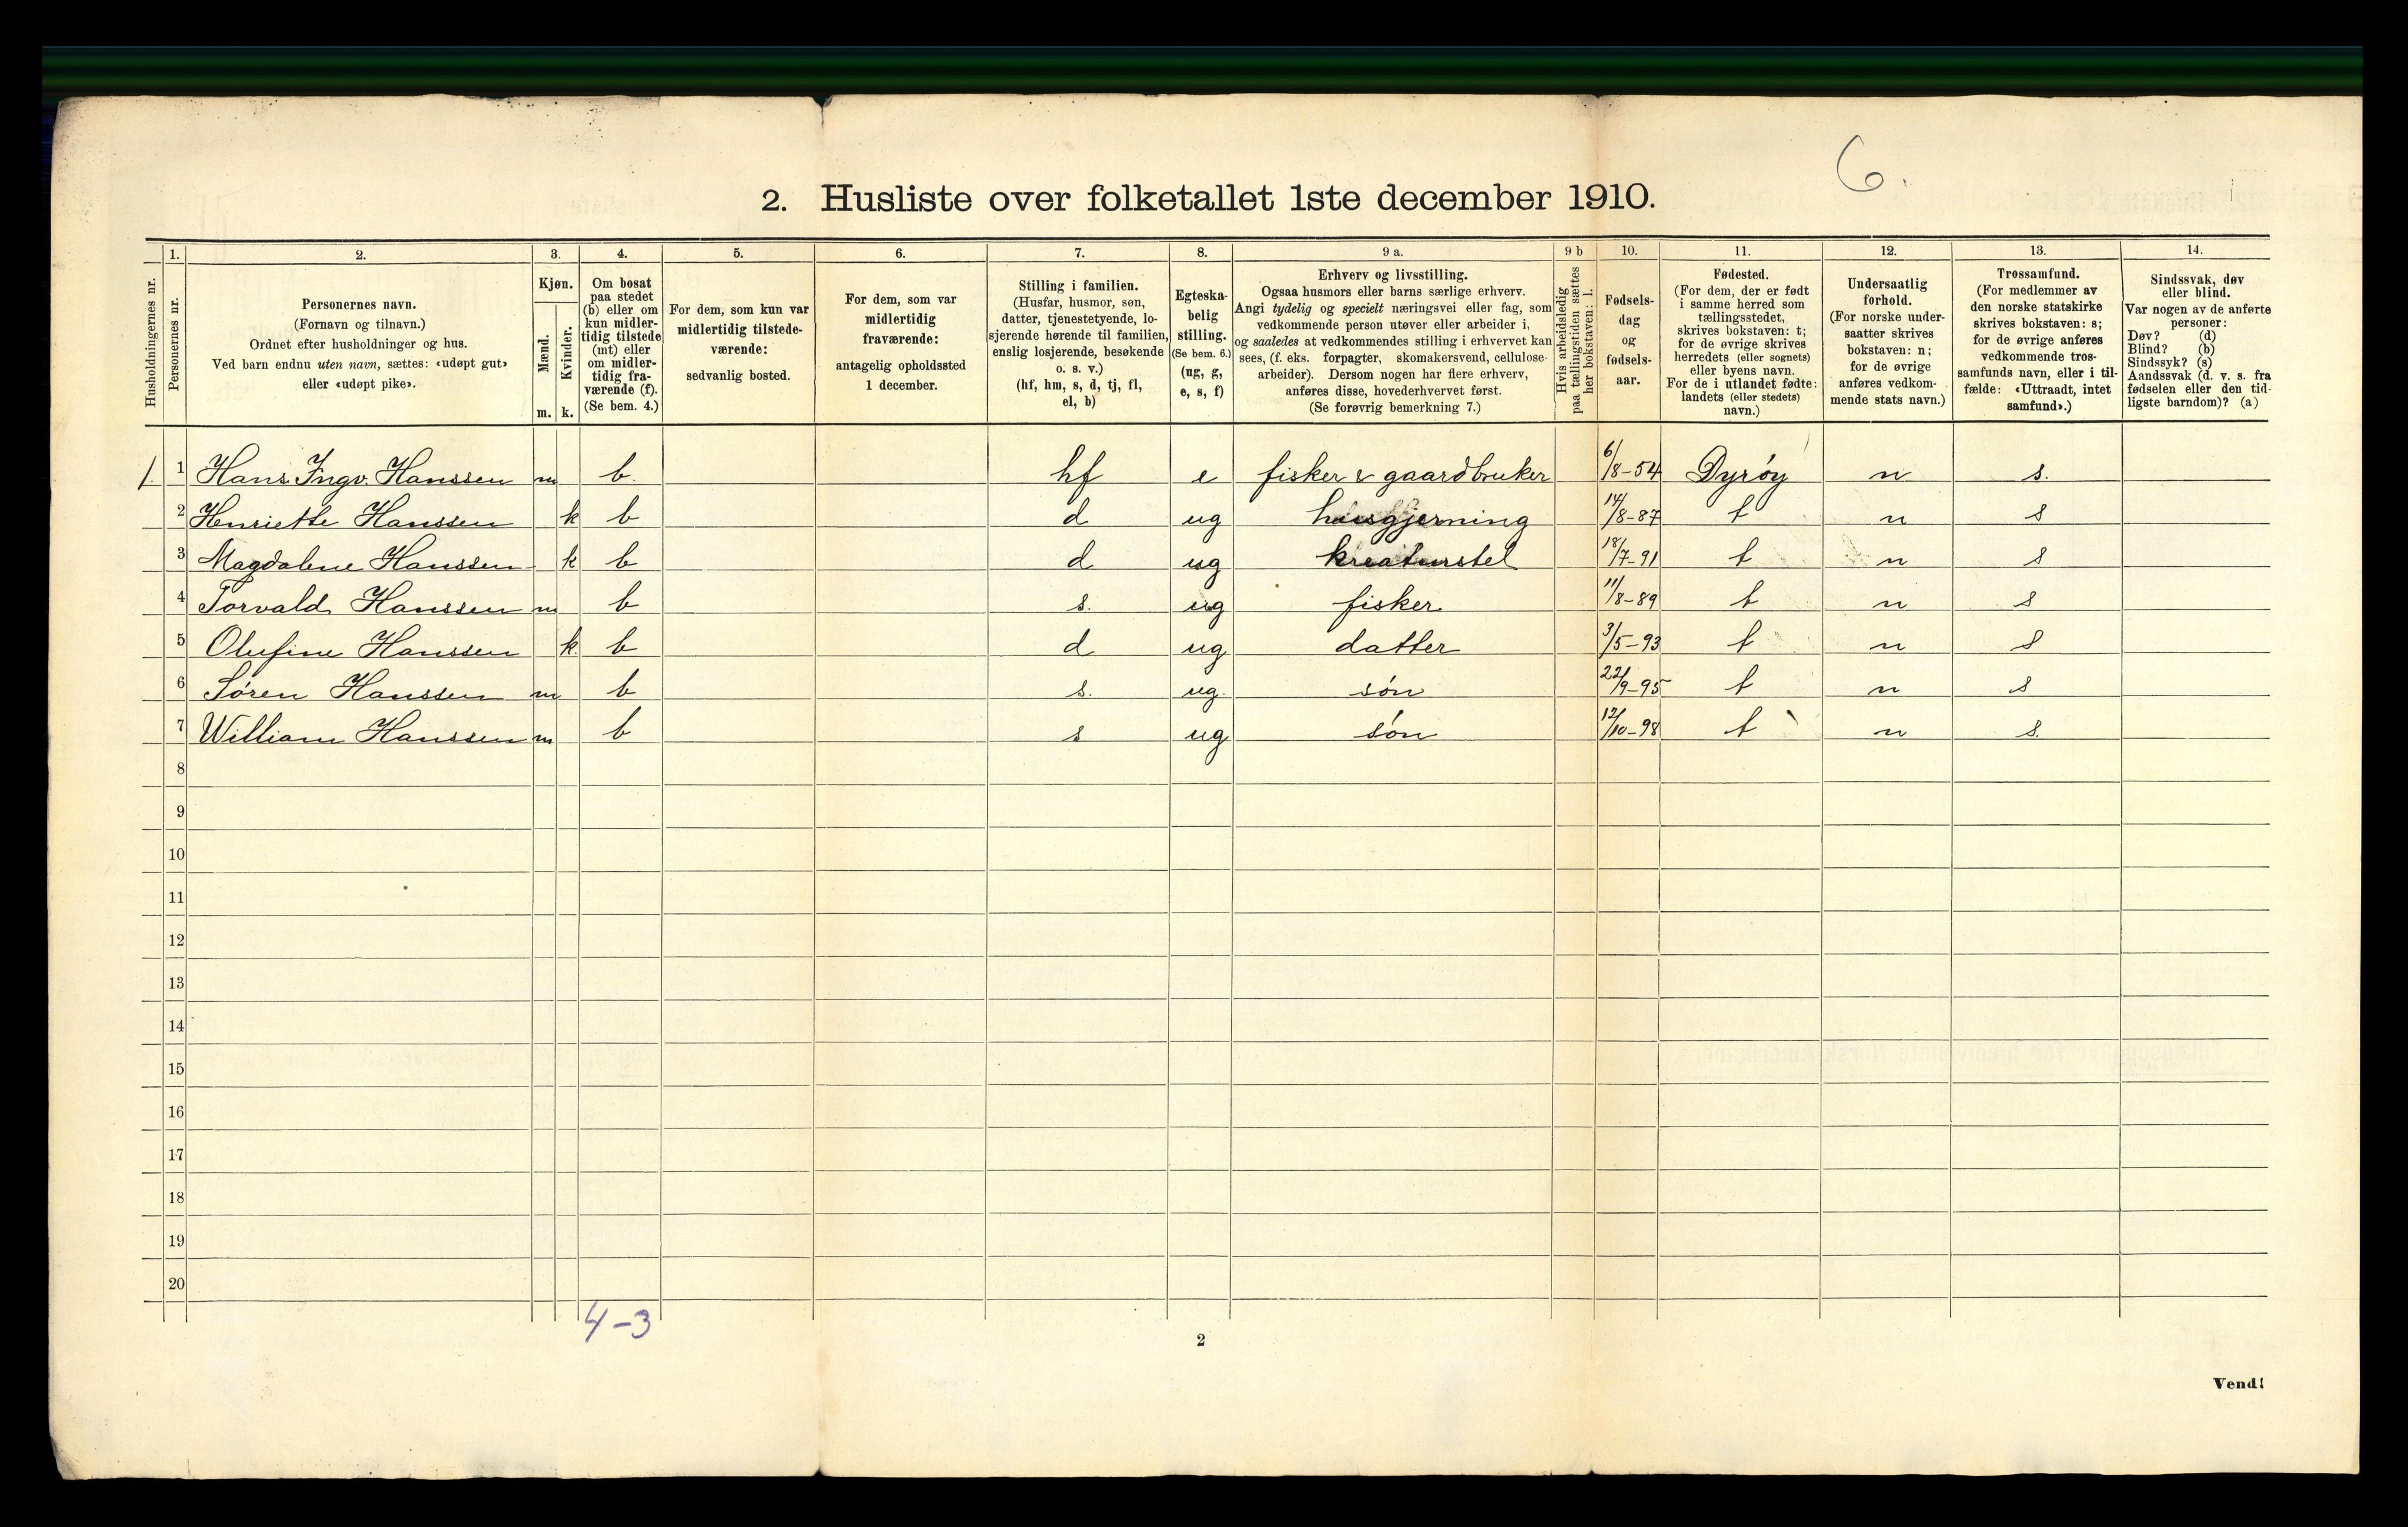 6.
2. Husliste over folketallet 1ste december 1910.
Husholdningernes nr.
1. Personernes nr.
2. Personernes navn.
(Fornavn og tilnavn.)
Ordnet efter husholdninger og hus.
Ved barn endnu uten navn, sættes: «udøpt gut»
eller «udøpt pike».
3. Kjøn.
Mænd. m.
Kvinder. k.
4. Om bosat
paa stedet
(b) eller om
kun midler-
tidig tilstede
(mt) eller
om midler-
tidig fra-
værende (f).
(Se bem. 4.)
5. For dem, som kun var
midlertidig tilstede-
værende:
sedvanlig bosted.
6. For dem, som var
midlertidig
fraværende:
antagelig opholdssted
1 december.
7. Stilling i familien.
(Husfar, husmor, søn,
datter, tjenestetyende, lo-
sjerende hørende til familien,
enslig losjerende, besøkende
o. s. v.)
(hf, hm, s, d, tj, fl,
el, b)
8. Egteska-
belig
stilling.
(Se bem. 6.)
(ug, g,
e, s, f)
9 a. Erhverv og livsstilling.
Ogsaa husmors eller barns særlige erhverv.
Angi tydelig og specielt næringsvei eller fag, som
vedkommende person utøver eller arbeider i,
og saaledes at vedkommendes stilling i erhvervet kan
sees, (f. eks. forpagter, skomakersvend, cellulose-
arbeider). Dersom nogen har flere erhverv,
anføres disse, hovederhvervet først.
(Se forøvrig bemerkning 7.)
9 b Hvis arbeidsledig
paa tællingstiden sættes
her bokstaven: l.
10. Fødsels-
dag
og
fødsels-
aar.
11. Fødested.
(For dem, der er født
i samme herred som
tællingsstedet,
skrives bokstaven: t;
for de øvrige skrives
herredets (eller sognets)
eller byens navn.
For de i utlandet fødte:
landets (eller stedets)
navn.)
12. Undersaatlig
forhold.
(For norske under-
saatter skrives
bokstaven: n;
for de øvrige
anføres vedkom-
mende stats navn.)
13. Trossamfund.
(For medlemmer av
den norske statskirke
skrives bokstaven: s;
for de øvrige anføres
vedkommende tros-
samfunds navn, eller i til-
fælde: «Uttraadt, intet
samfund».)
14. Sindssvak, døv
eller blind.
Var nogen av de anførte
personer:
Døv? (d)
Blind? (b)
Sindssyk? (s)
Aandssvak (d. v. s. fra
fødselen eller den tid-
ligste barndom)? (a)
1. 1 Hans Ingv. Hanssen m b. hf e fisker & gaardbruker 6/8-54 Dyrøy n s.
2 Henriette Hanssen k b d ug husgjerning 14/8-87 t n s
3 Magdalene Hanssen k b d ug kreaturstel 18/7-91 t n s
4 Torvald Hanssen m b s. ug fisker 11/8-89 t n s
5 Olufine Hanssen k. b d ug datter 3/5-93 t n s
6 Søren Hanssen m b s. ug. søn 22/9-95 t n s
7 William Hanssen m b s ug søn 12/10-98 t n s.
8
9
10
11
12
13
14
15
16
17
18
19
20
4-3
2
Vend!